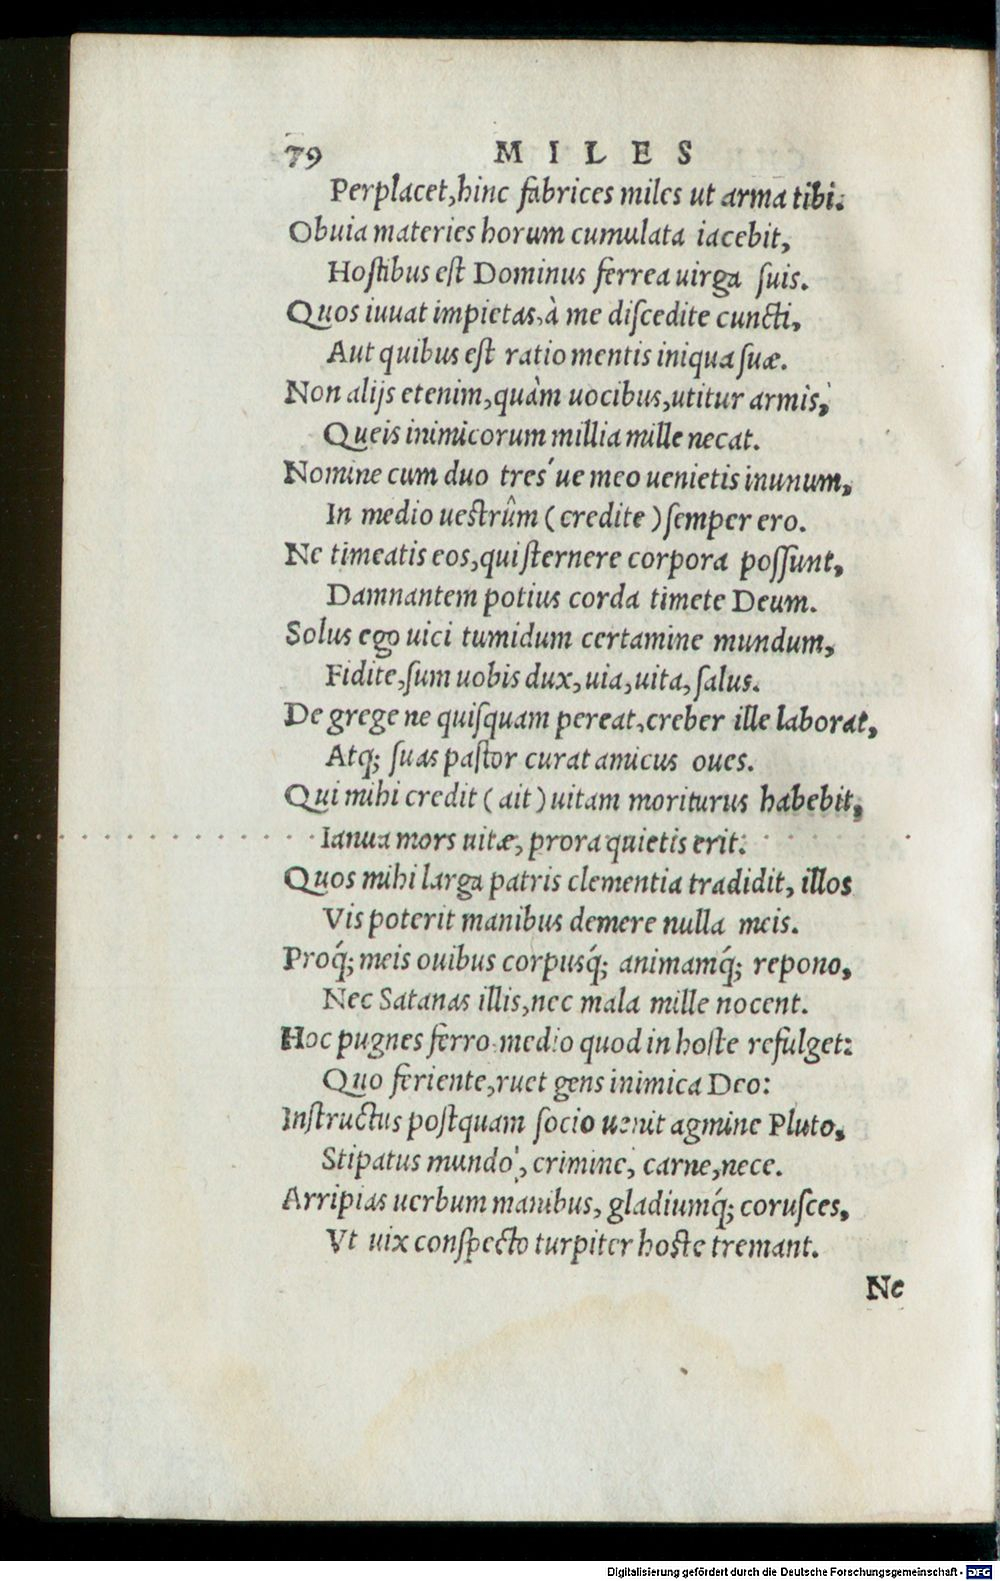 79 MILES
Perplacet, hinc fabrices miles ut arma tibi.
Obuia materies horum cumulata iacebit,
Hostibus est Dominus ferrea uirga suis.
Quos iuuat impietas, à me discedite cuncti,
Aut quibus est ratio mentis iniqua suæ.
Non alijs etenim, quàm uocibus, utitur armis,
Queis inimicorum millia mille necat.
Nomine cum duo tres´ue meo uenietis inunum,
In medio uestrûm (credite) semper ero.
Ne timeatis eos, qui sternere corpora possunt,
Damnantem potius corda timete Deum.
Solus ego uici tumidum certamine mundum,
Fidite, sum uobis dux, uia, uita, salus.
De grege ne quisquam pereat, creber ille laborat,
Atq; suas pastor curat amicus oues.
Qui mihi credit (ait) uitam moriturus habebit,
Ianua mors uitæ, prora quietis erit.
Quos mihi larga patris clementia tradidit, illos
Vis poterit manibus demere nulla meis.
Proq́; meis ouibus corpusq́; animamq́; repono,
Nec Satanas illis, nec mala mille nocent.
Hoc pugnes ferro medio quod in hoste refulget:
Quo feriente, ruet gens inimica Deo:
Instructus postquam socio uenit agmine Pluto,
Stipatus mundo, crimine, carne, nece.
Arripias uerbum manibus, gladiumq́; corusces,
Vt uix conspecto turpiter hoste tremant.
Ne
Digitalisierung gefördert durch die Deutsche Forschungsgemeinschaft - DFG